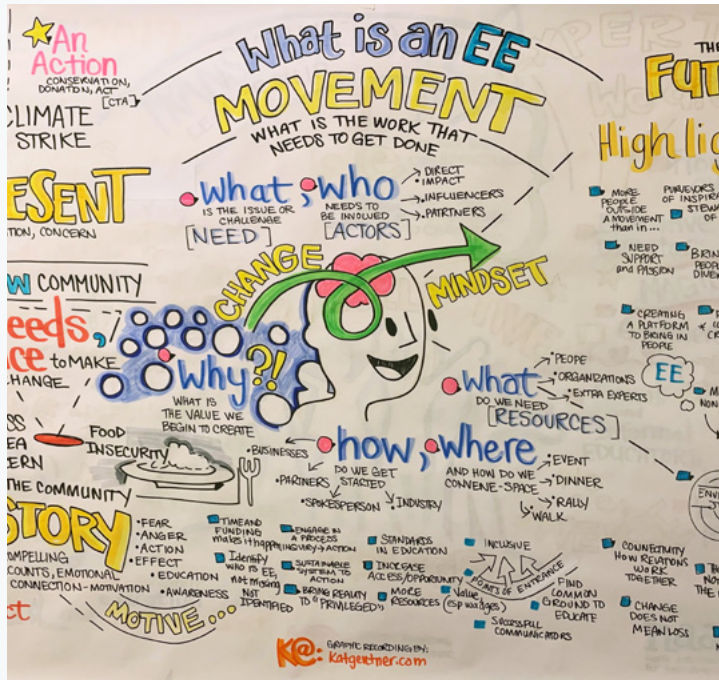 An
Action
CONSERVATION,
DONATION, ACT
[CTA]
CLIMATE
STRIKE
ESENT
TION, CONCERN
W COMMUNITY
eeds,
ce to MAKE
CHANGE
FOOD
INSECURITY
THE COMMUNITY
STORY
OMPELLING
COUNTS, EMOTIONAL
CONNECTION-MOTIVATION
•FEAR
•ANGER
•ACTION
•EFFECT
•EDUCATION
•AWARENESS
MOTIVE...
What is an EE
MOVEMENT
WHAT IS THE WORK THAT
NEEDS TO GET DONE
What,
IS THE ISSUE OR
CHALLENGE
[NEED]
WHO
NEEDS TO
BE INVOLVED
[ACTORS]
DIRECT
•IMPACT
•INFLUENCERS
•PARTNERS
CHANGE
MINDSET
Why?!
WHAT IS
THE VALUE WE
BEGIN TO CREATE
What
DO WE NEED
[RESOURCES]
•ORGANIZATIONS
•EXTRA EXPERTS
how,
DO WE GET
STARTED
•BUSINESSES
•PARTNERS
•SPOKESPERSON
INDUSTRY
Where
AND HOW DO WE
CONVENE-SPACE
•EVENT
•DINNER
•RALLY
WALK
TIME AND
FUNDING
makes it happen
Identify
who is EE,
not missing
NOT
IDENTIFIED
ENGAGE IN
A PROCESS
ACTION
SUSTAINABLE
SYSTEM TO
ACTION
BRING REALITY
TO "PRIVILEGED"
STANDARDS
IN EDUCATION
INCREASE
ACCESS/OPPORTUNITY
MORE
RESOURCES
INCLUSIVE
POINTS OF ENTRANCE
Value
SUCCESSFUL
COMMUNICATORS
FIND
COMMON
GROUND TO
EDUCATE
CONNECTIVITY
HOW RELATIONS
WORK
TOGETHER
CHANGE
DOES NOT
MEAN LOSS
FUT
Highlig
MORE
PEOPLE
OUTSIDE
A MOVEMENT
than in...
PURVEYORS
OF INSPIRA
STEW
OF
NEED
SUPPORT
and PASSION
BRIN
PEOP
DIVE
CREATING
A PLATFORM
TO BRING IN
PEOPLE
EE
ENVI
K@: GRAPHIC RECORDING BY:
katgentner.com